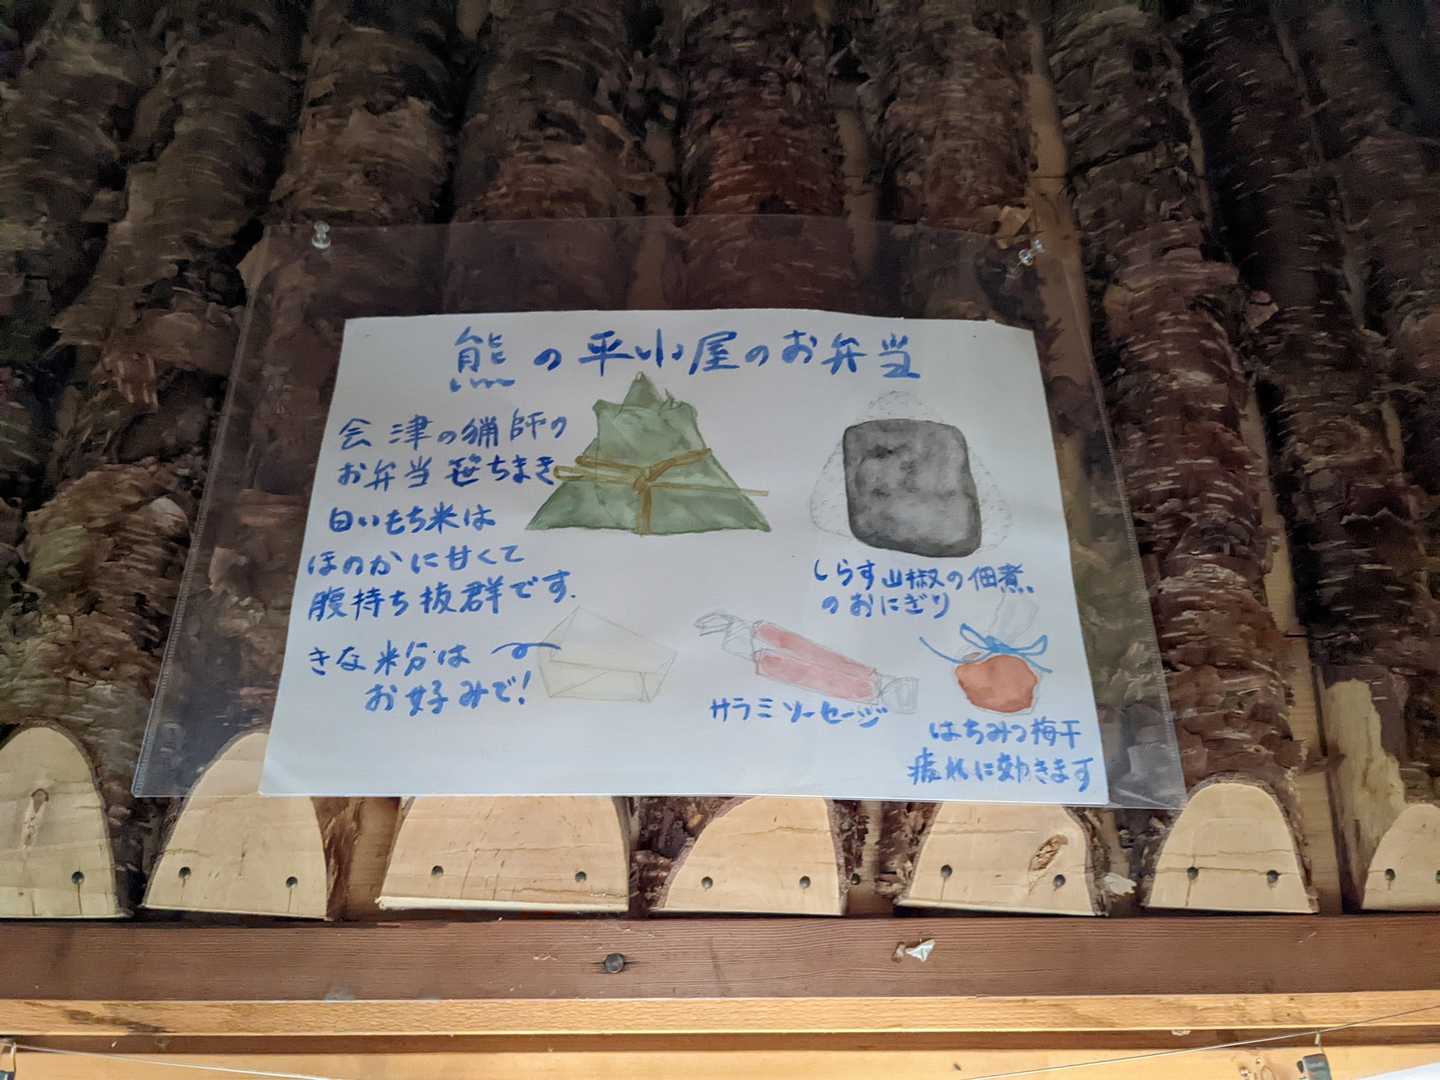 熊の平小屋のお弁当
会津の猟師の
お弁当 笹ちまき
白いもち米は
ほのかに甘くて
腹持ち抜群です.
きな粉は
お好みで!
しらす山椒の佃煮
のおにぎり
サラミソーセージ
はちみつ梅干
疲れに効きます